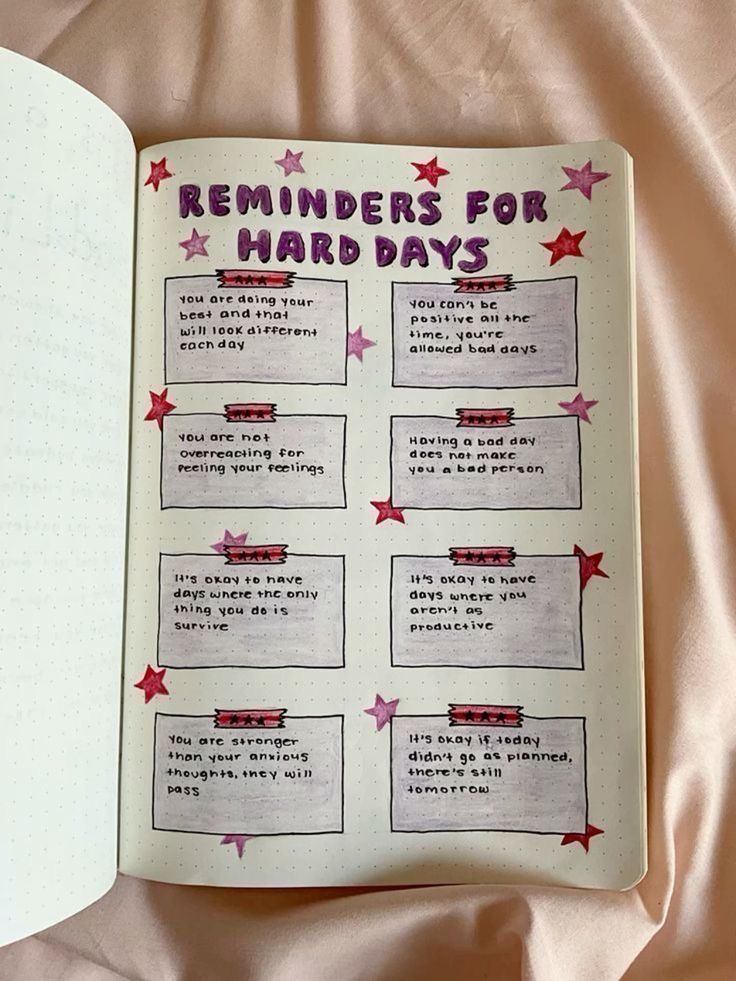 REMINDERS FOR
HARD DAYS
you are doing your
best and that
will look different
each day
you can't be
positive all the
time, you're
allowed bad days
you are not
overreacting for
feeling your feelings
Having a bad day
does not make
you a bad person
It's okay to have
days where the only
thing you do is
survive
It's okay to have
days where you
aren't as
productive
You are stronger
than your anxious
thoughts, they will
pass
It's okay if today
didn't go as planned,
there's still
tomorrow